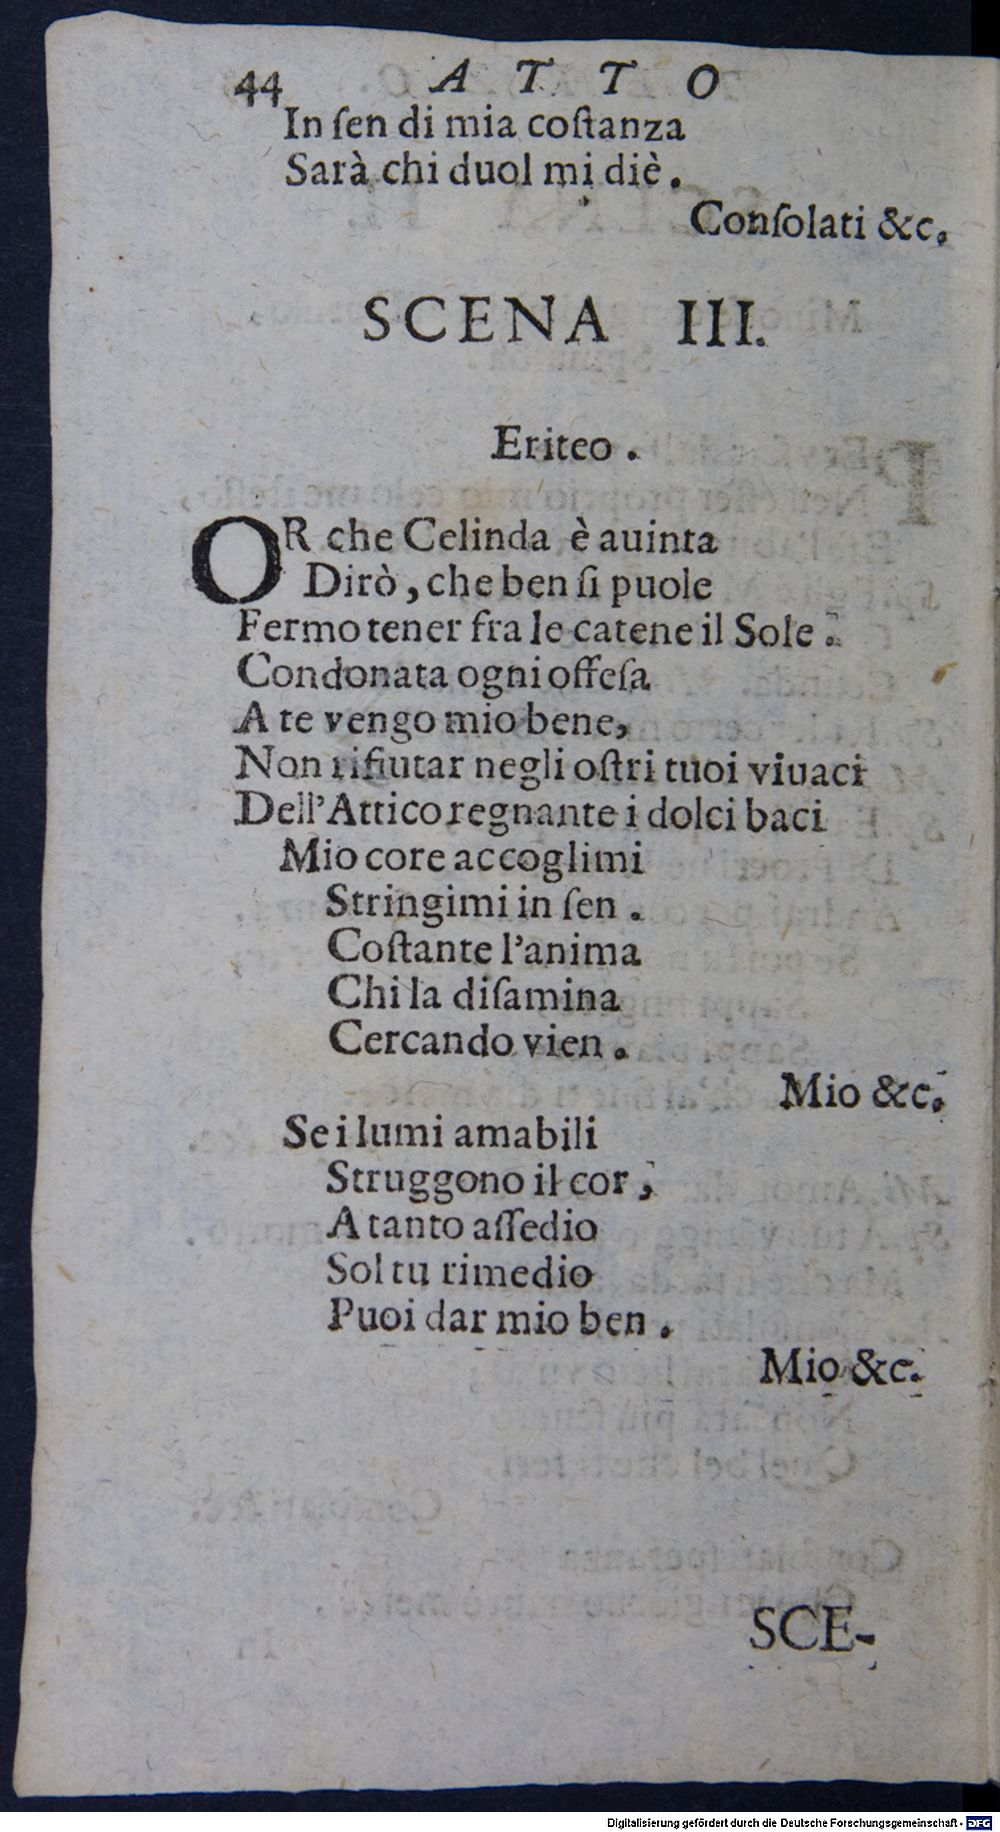 44 ATTO
In ſen di mia coſtanza
Sarà chi duol mi diè.
Conſolati &c.
SCENA III.
Eriteo.
OR che Celinda è auinta
Dirò, che ben ſi puole
Fermo tener fra le catene il Sole.
Condonata ogni offeſa
A te vengo mio bene,
Non rifiutar negli oſtri tuoi viuaci
Dell'Attico regnante i dolci baci
Mio core accoglimi
Stringimi in ſen.
Coſtante l'anima
Chi la diſamina
Cercando vien.
Mio &c.
Se i lumi amabili
Struggono il cor,
A tanto aſſedio
Sol tu rimedio
Puoi dar mio ben.
Mio &c.
SCE-
Digitalisierung gefördert durch die Deutsche Forschungsgemeinschaft - DFG